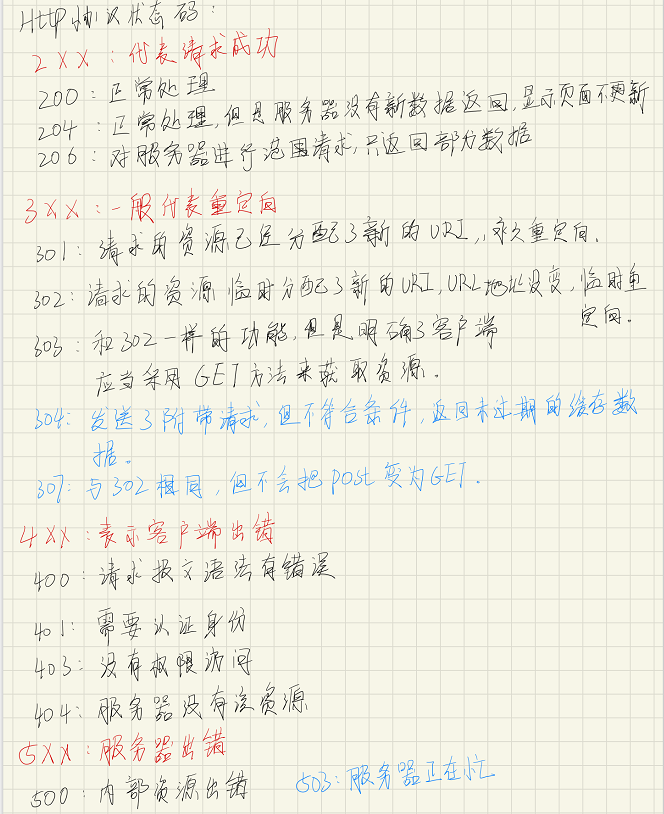 Http协议状态码：
2XX：代表请求成功
200：正常处理
204：正常处理，但是服务器没有新数据返回，显示页面不更新
206：对服务器进行范围请求，只返回部分数据
3XX：一般代表重定向
301：请求的资源已经分配了新的URI，永久重定向.
302：请求的资源 临时分配了新的URI，URL地址没变，临时重
定向.
303：和302一样的功能，但是明确了客户端
应当采用GET方法来获取资源。
304：发送了附带请求，但不符合条件，返回未过期的缓存数
据。
307：与302相同，但不会把post变为GET.
4XX：表示客户端出错
400：请求报文语法有错误
401：需要认证身份
403：没有权限访问
404：服务器没有该资源
5XX：服务器出错
500：内部资源出错 503：服务器正在忙